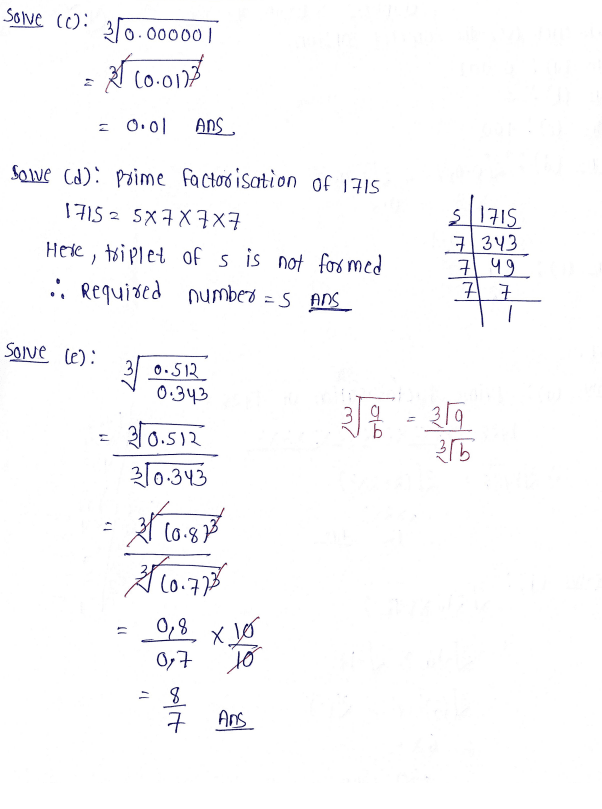 Solve (c): ∛0.000001
= ∛(0.01)³
= 0.01 Ans
Solve (d): Prime factorisation of 1715
1715 = 5×7×7×7
Here, triplet of 5 is not formed
∴ Required number = 5 Ans
5 | 1715
7 | 343
7 | 49
7 | 7
| 1
Solve (e): ∛(0.512/0.343)
= ∛0.512/∛0.343
∛(a/b) = ∛a/∛b
= ∛(0.8)³/∛(0.7)³
= 0,8/0,7 × 10/10
= 8/7 Ans